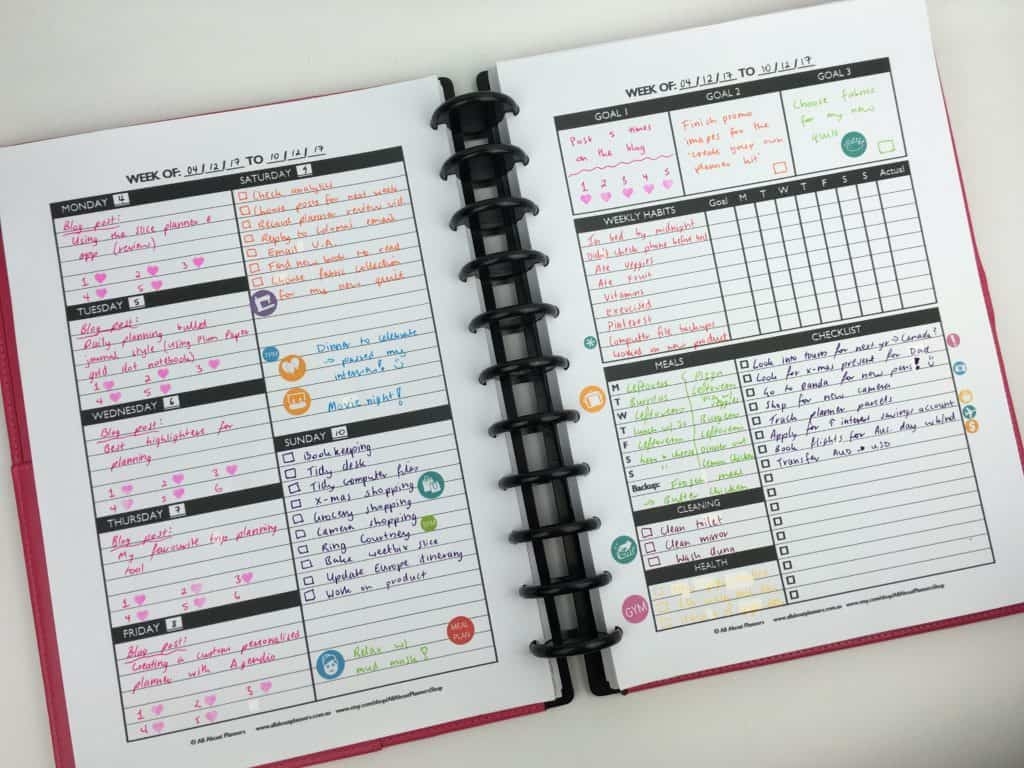 WEEK OF: 04/12/17 TO 10/12/17
MONDAY 4
Blog post:
Using the slice planner
app (review)
1 2 3
4 5
TUESDAY 5
Blog post:
Daily planning bullet
journal style (using Plum Paper
gold dot notebook)
1 2 3
4 5
WEDNESDAY 6
Blog post:
Best highlighters for
planning
1 2 3
4 5 6
THURSDAY 7
Blog post:
My favourite trip planning
tool
1 2 3
4 5 6
FRIDAY 8
Blog post:
Creating a custom personalised
planner with Agendio
1 2 3
4 5
SATURDAY 9
Check analytics
Choose posts for next week
Record planner review vid.
Reply to email
Email V.A.
Find new book to read
Choose fabric collection
for my new quilt
Dinner to celebrate
→ passed my
interview!
Movie night!
SUNDAY 10
Bookkeeping
Tidy desk
Tidy computer files
x-mas shopping
Grocery shopping
Camera shopping
Ring Courtney
Bake weetbix slice
Update Europe itinerary
Work on product
MEAL
PLAN
Relax w/
mud mask!
© All About Planners www.allaboutplanners.com.au www.etsy.com/shop/AllAboutPlannersShop
WEEK OF: 04/12/17 TO 10/12/17
GOAL 1
Post 5 times
on the blog
1 2 3 4 5
GOAL 2
Finish promo
images for the
'create your own
planner kit'
GOAL 3
Choose fabric
for my new
quilt
WEEKLY HABITS Goal M T W T F S S Actual
In bed by midnight
Didn't check phone before bed
Ate veggies
Ate fruit
Vitamins
Exercised
Pinterest
Computer file backups
Worked on new product
MEALS
M Leftovers
T Burritos
W Leftovers
T
F Leftovers
S
S
Backup: Frozen meal
→ Butter chicken
CLEANING
Clean toilet
Clean mirror
Wash
HEALTH
GYM
CHECKLIST
Look into tours for next yr → Canada?
Look for x-mas present for Dad
Go to Panda for new pens!
Shop for new camera
Track planner parcels
Apply for interest savings account
Book flights for Aus. day
Transfer AUD → USD
© All About Planners www.allaboutplanners.com.au www.etsy.com/shop/AllAboutPlannersShop